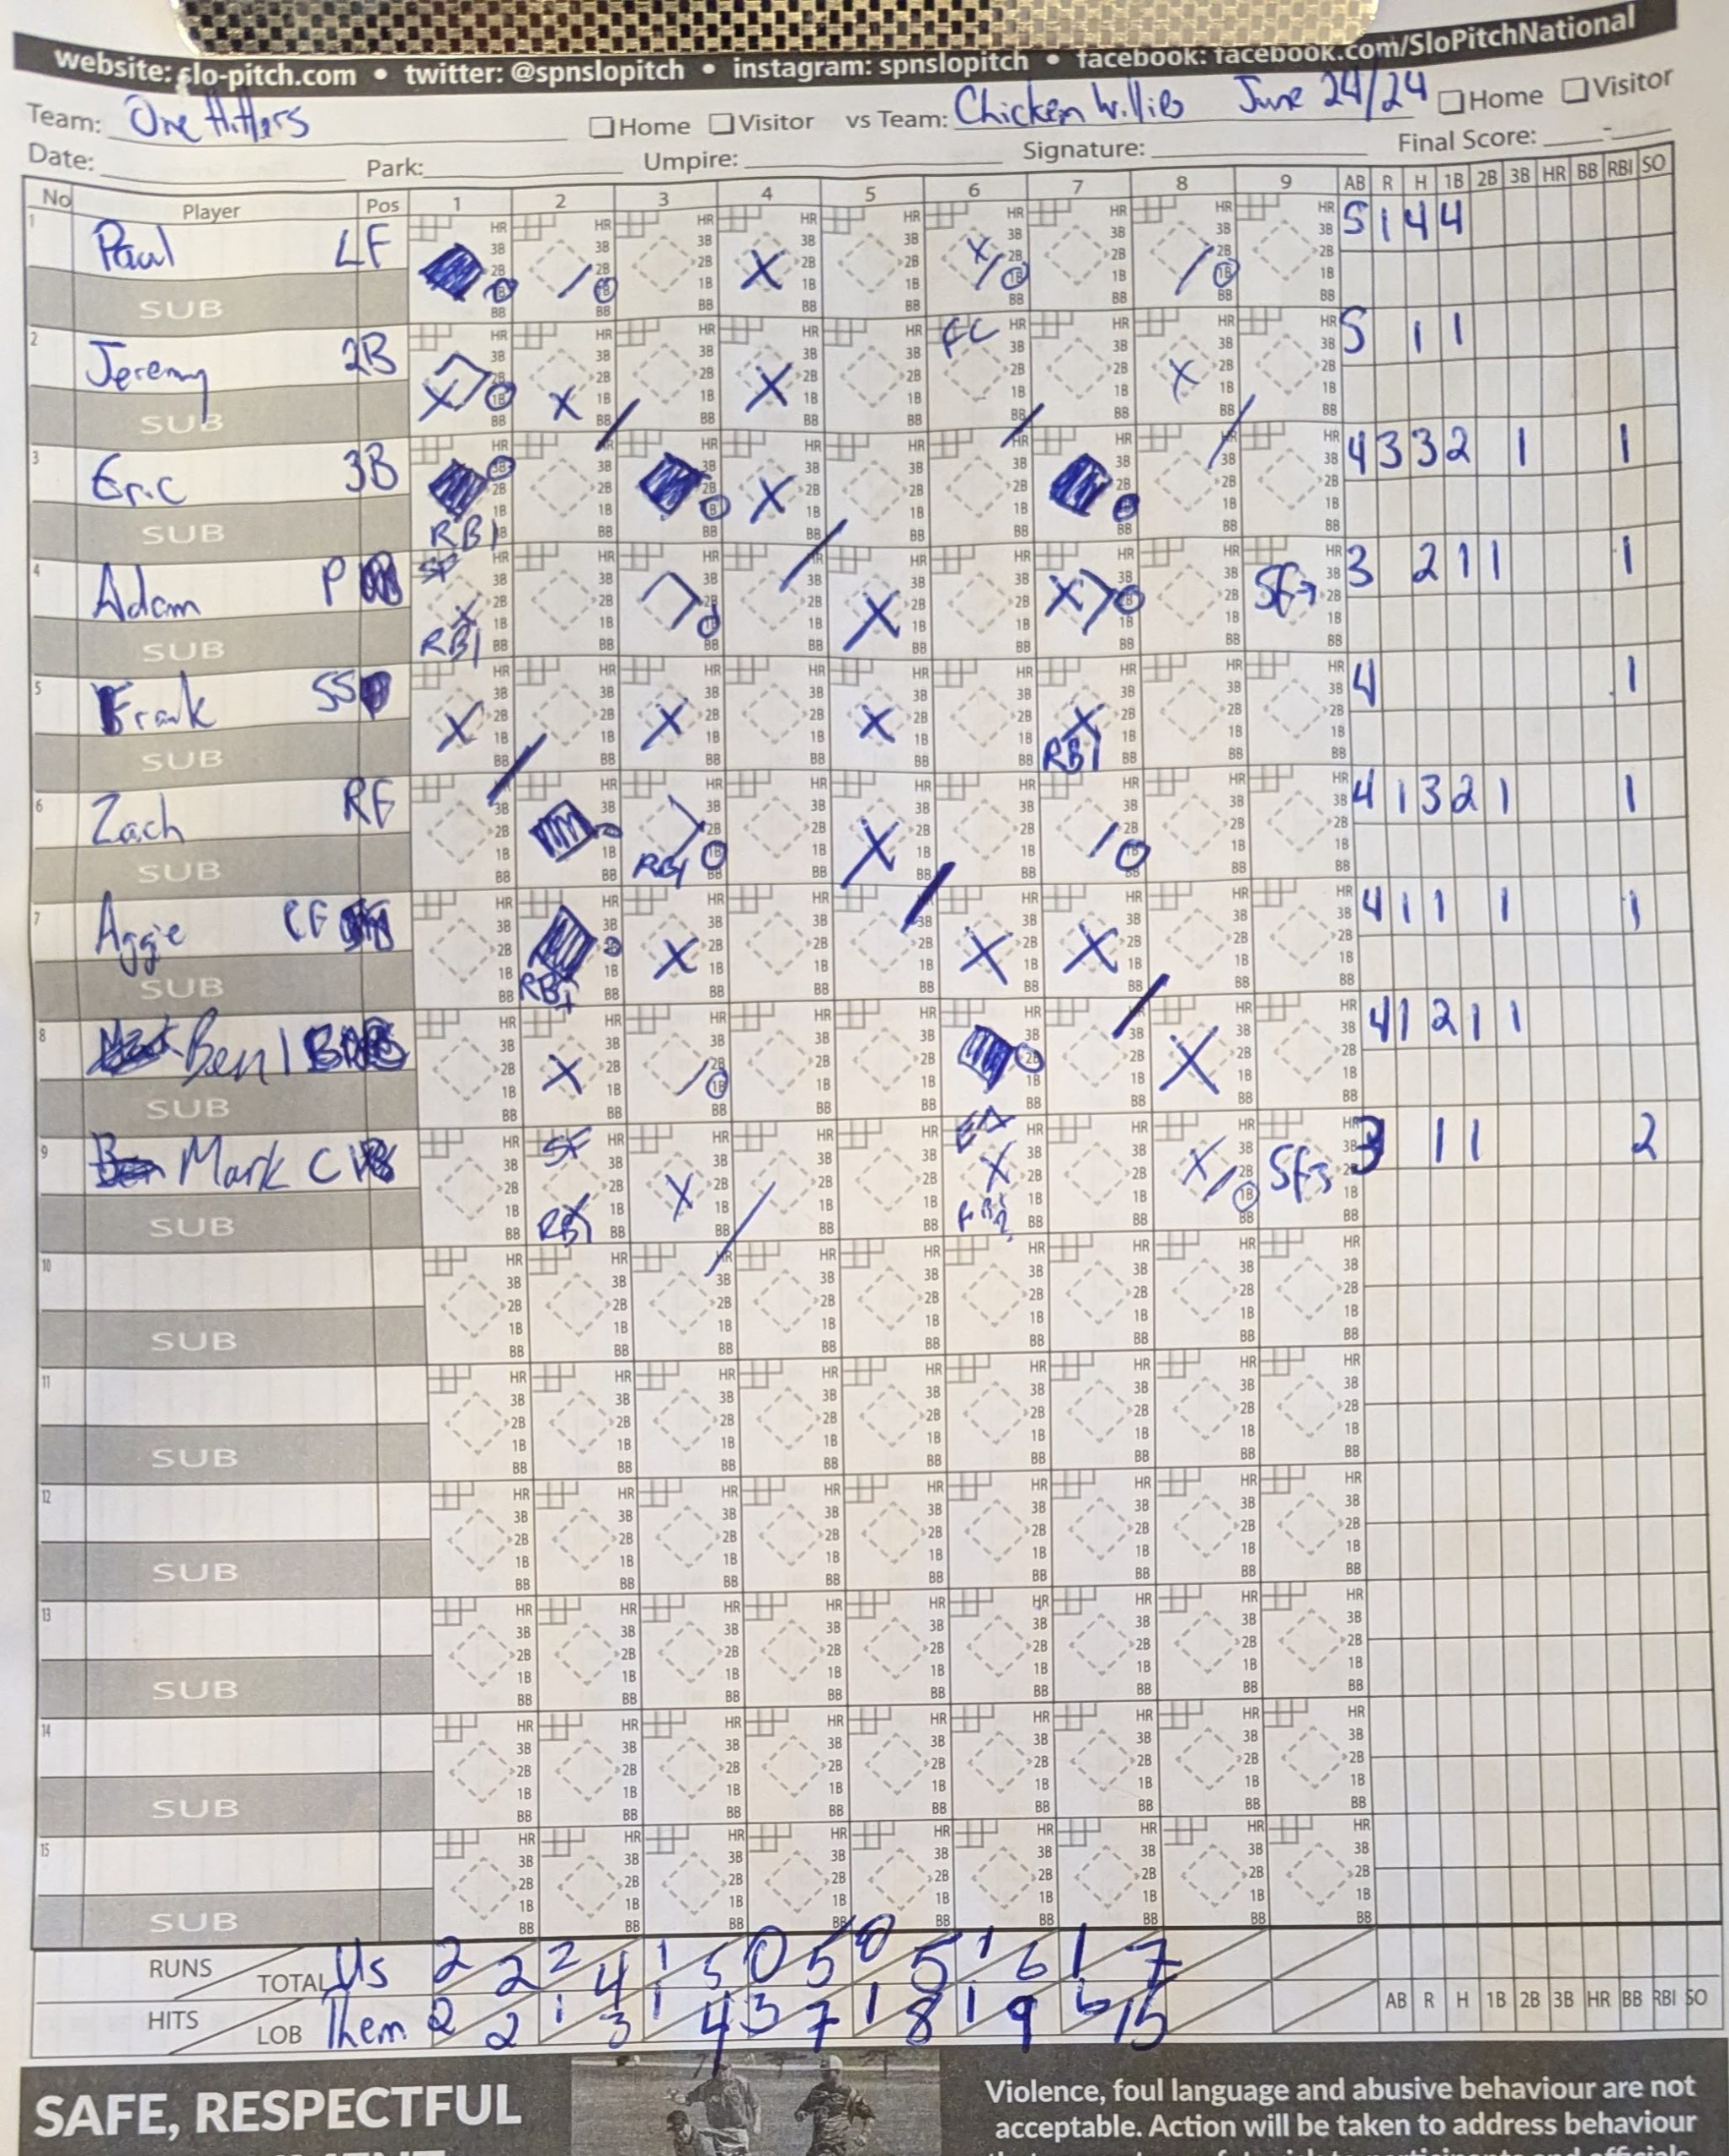 website: slo-pitch.com • twitter: @spnslopitch • instagram: spnslopitch • facebook: facebook.com/SloPitchNational
Team: One Hitters Home Visitor vs Team: Chicken Willies June 24/24 Home Visitor
Date: Park: Umpire: Signature: Final Score: -
No Player Pos 1 2 3 4 5 6 7 8 9 AB R H 1B 2B 3B HR BB RBI SO
1 Paul LF 5 1 4 4
SUB
2 Jeremy 2B FC 5 1 1
SUB
3 Eric 3B 4 3 3 2 1 1
SUB RBI
4 Adam P SF SF7 3 2 1 1 1
SUB RBI
5 Frank SS 4 1
SUB RBI
6 Zach RF 4 1 3 2 1 1
SUB RBI
7 Aggie CF 4 1 1 1 1
SUB RBI
8 Ben 1B 4 1 2 1 1
SUB
9 Mark C SF SF3 3 1 1 2
SUB RBI
10
SUB
11
SUB
12
SUB
13
SUB
14
SUB
15
SUB
RUNS TOTAL Us 2 2 2 4 1 5 0 5 0 5 1 6 1 7
HITS LOB Them 2 2 1 3 1 4 3 7 1 8 1 9 6 15 AB R H 1B 2B 3B HR BB RBI SO
SAFE, RESPECTFUL
Violence, foul language and abusive behaviour are not
acceptable. Action will be taken to address behaviour